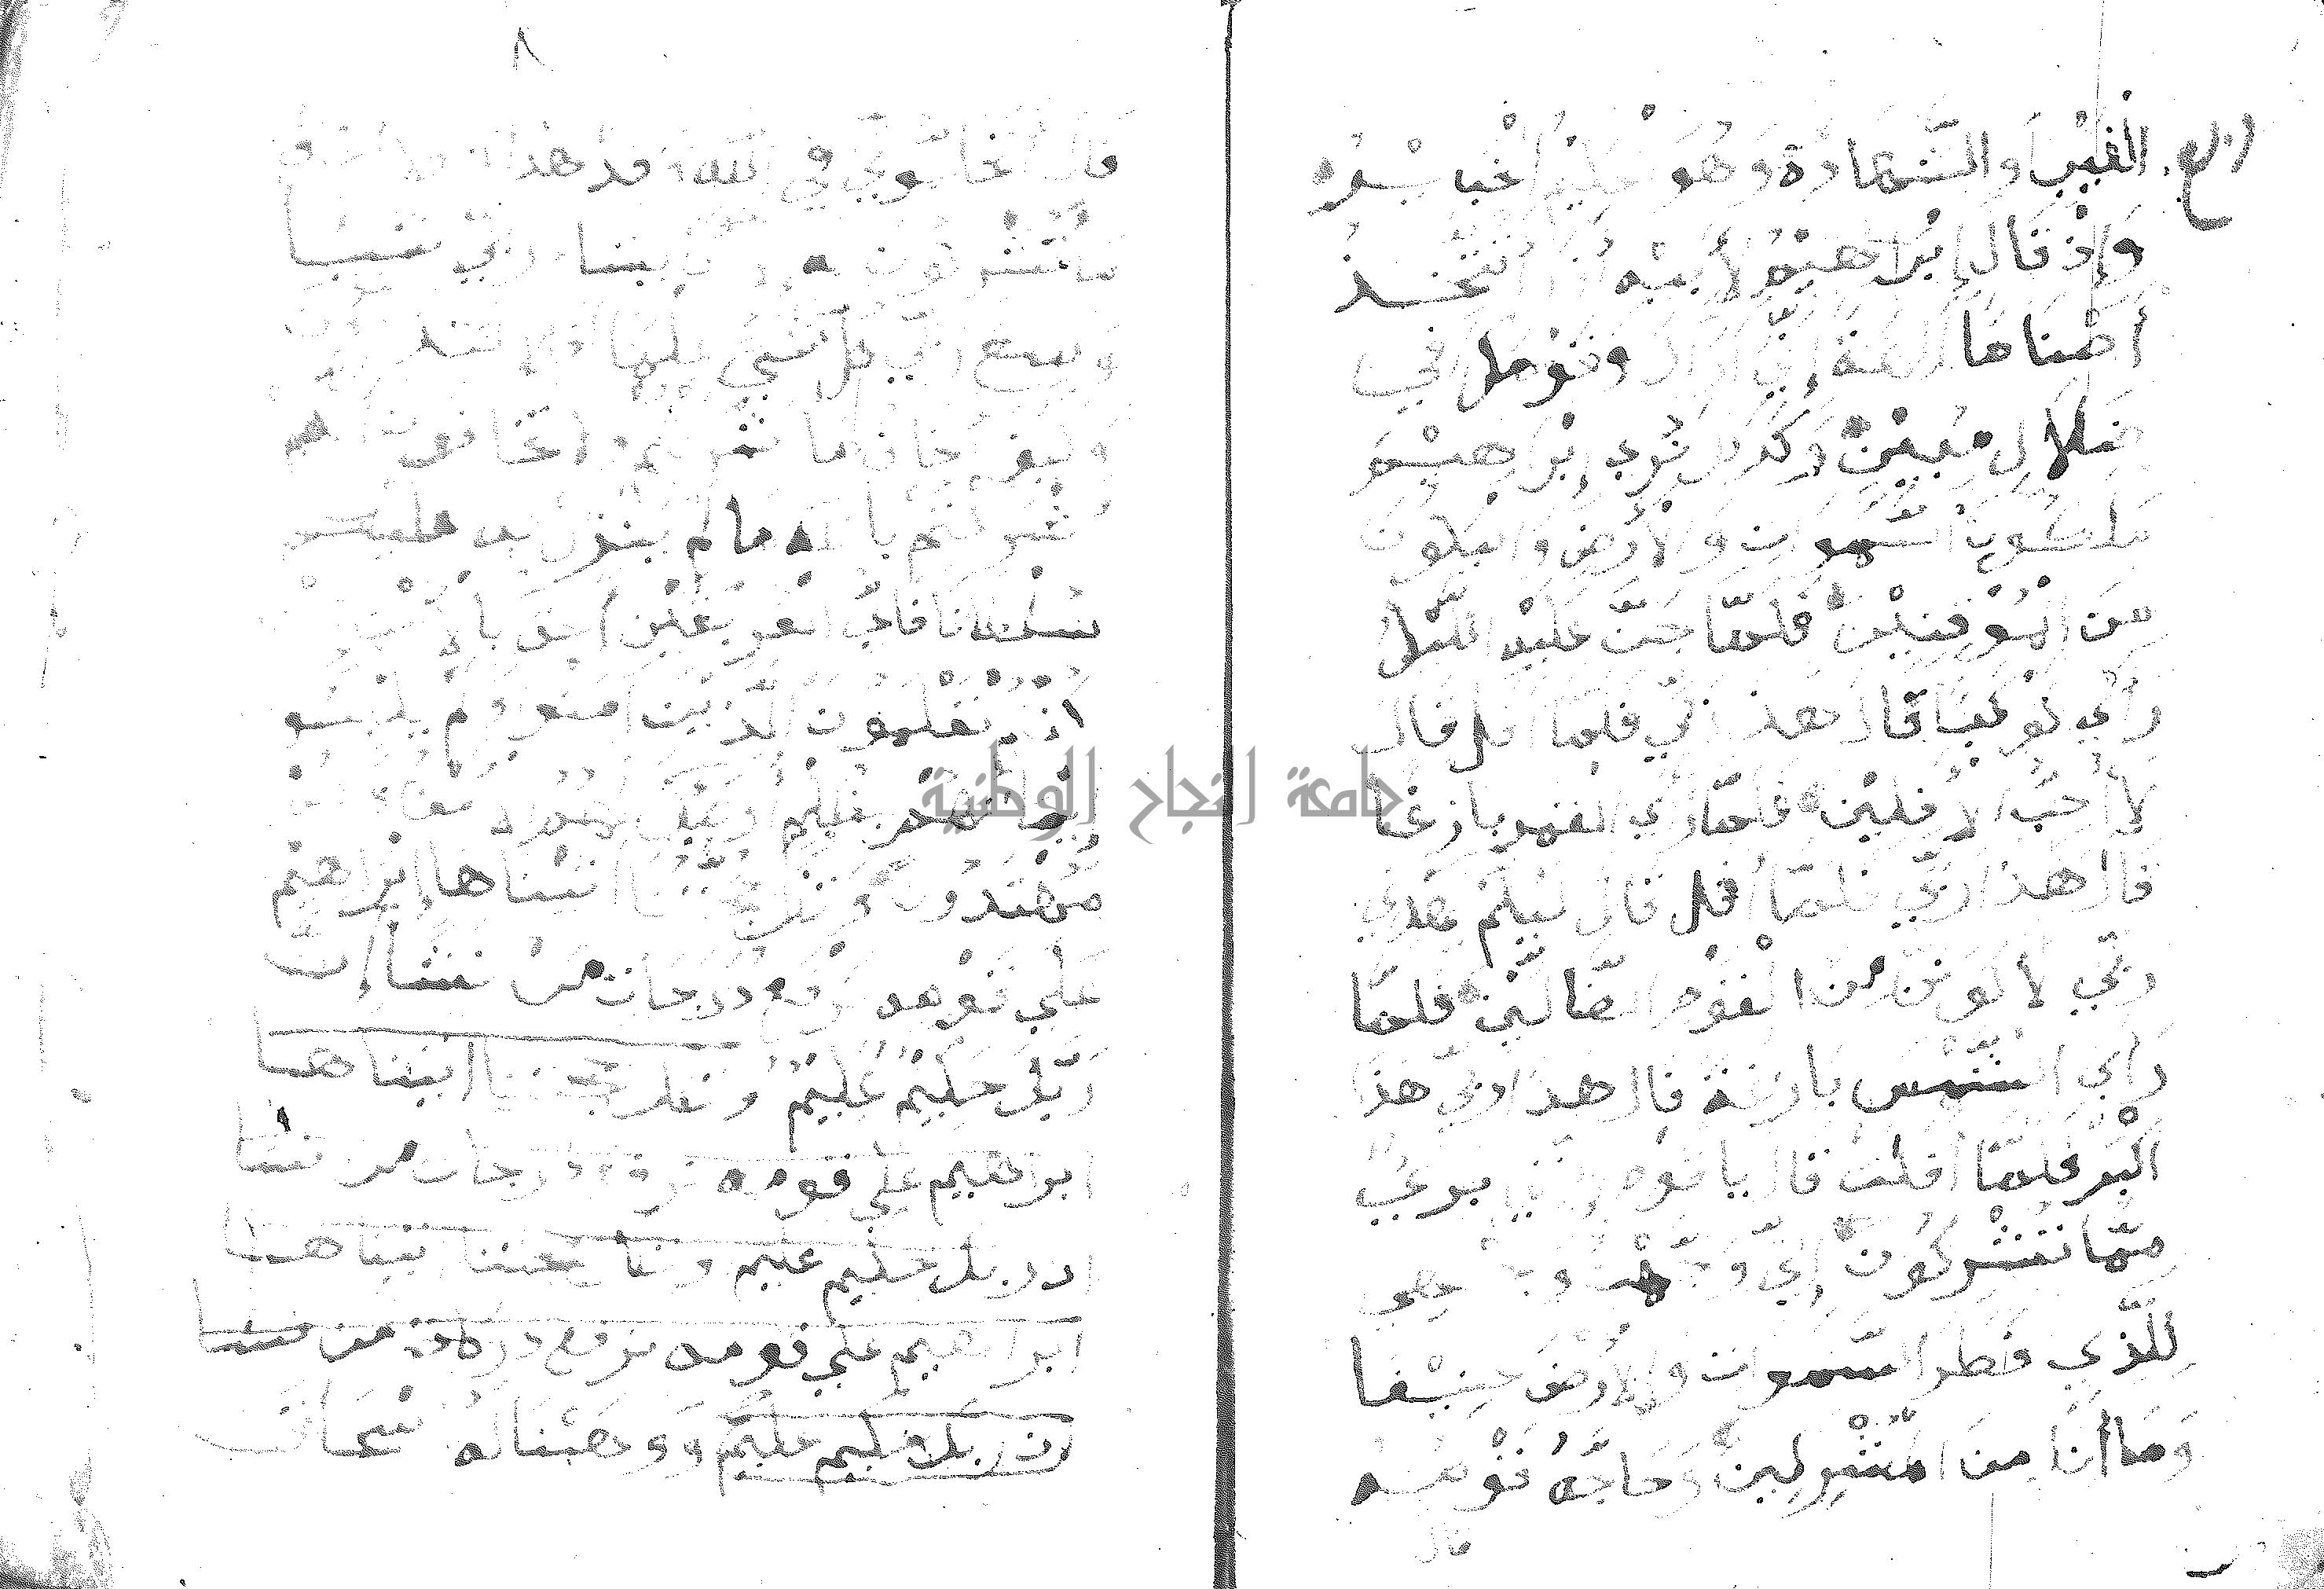 الغَيْبِ وَالشَّهَادَةِ وَهُوَ
وَإِذْ قَالَ إِبْرَاهِيْمُ لِأَبِيْهِ أَتَتَّخِذُ
أَصْنَامًا آلِهَةً إِنِّي أَرَاكَ وَقَوْمَكَ فِي
ضَلَالٍ مُبِيْنٍ وَكَذَلِكَ نُرِي إِبْرَاهِيْمَ
مَلَكُوتَ السَّمَوَاتِ وَالْأَرْضِ وَلِيَكُونَ
مِنَ الْمُوْقِنِيْنَ فَلَمَّا جَنَّ عَلَيْهِ اللَّيْلُ
رَأَى كَوْكَبًا قَالَ هذا رَبِّي فَلَمَّا أفل قَالَ
لَا أُحِبُّ الْآفِلِيْنَ فَلَمَّا رَأى القمر بازغًا
قَالَ هَذَا رَبِّي فَلَمَّا أَفَلَ قَالَ لَئِنْ لَمْ يَهْدِنِي
رَبِّي لَأَكُوْنَنَّ مِنَ الْقَوْمِ الضَّالِّيْنَ فَلَمَّا
رَأَى الشَّمْسَ بَازِغَةً قَالَ هَذَا رَبِّي هَذَا
أَكْبَرُ فَلَمَّا أَفَلَتْ قَالَ يَا قَوْمِ إِنِّي بَرِيءٌ
مِمَّا تُشْرِكُونَ إِنِّي وَجَّهْتُ وَجْهِي
لِلَّذِي فَطَرَ السَّمَوَاتِ وَالْأَرْضَ حَنِيْفًا
وَمَا أَنَا مِنَ الْمُشْرِكِيْنَ وَحَاجَّهُ قَوْمُهُ
قال
٨
قَالَ أَتُحَاجُّونِّي فِي اللَّهِ وَقَدْ هَدَانِ وَلَا أَخَافُ
مَا تُشْرِكُونَ بِهِ إِلَّا أَنْ يَشَاءَ رَبِّي شَيْئًا
وَسِعَ رَبِّي كُلَّ شَيْءٍ عِلْمًا أَفَلَا تَتَذَكَّرُونَ
وَكَيْفَ أَخَافُ مَا أَشْرَكْتُمْ وَلَا تَخَافُونَ أَنَّكُمْ
أَشْرَكْتُمْ بِاللَّهِ مَا لَمْ يُنَزِّلْ بِهِ عَلَيْكُمْ
سُلْطَانًا فَأَيُّ الْفَرِيْقَيْنِ أَحَقُّ بِالْأَمْنِ
إن كنتم تَعْلَمُونَ الَّذِيْنَ آمَنُوا وَلَمْ يَلْبِسُوا
إِيْمَانَهُمْ بِظُلْمٍ أُولَئِكَ لَهُمُ الْأَمْنُ وَهُمْ
مُهْتَدُونَ وَتِلْكَ حُجَّتُنَا آتَيْنَاهَا إِبْرَاهِيْمَ
عَلَى قَوْمِهِ نَرْفَعُ دَرَجَاتٍ مَنْ نَشَاءُ إِنَّ
رَبَّكَ حَكِيْمٌ عَلِيْمٌ وَتِلْكَ حُجَّتُنَا آتيناها
ابراهيم على قومه نرفع درجات من نشا
ان ربك حكيم عليم وتلك حجتنا اتيناها
ابراهيم على قومه نرفع درجات من نشا
ان ربك حكيم عليم وَوَهَبْنَا لَهُ إِسْحَاقَ
جامعة النجاح الوطنية